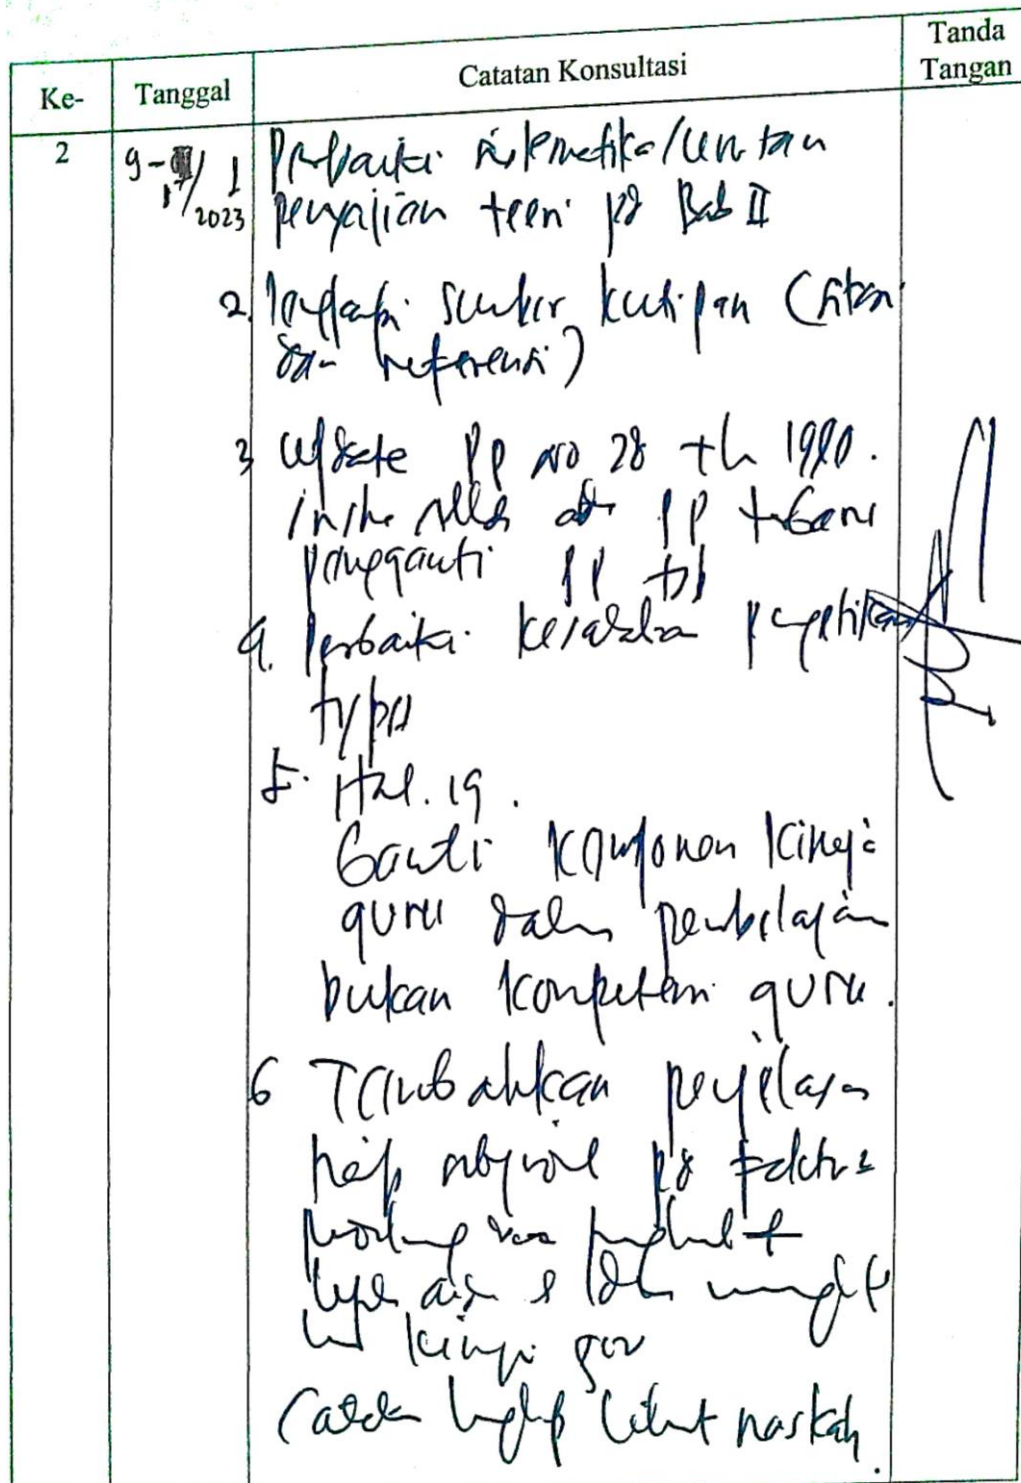 Ke- Tanggal Catatan Konsultasi Tanda Tangan
2 9-1/2023 1 Perbaiki sistematika/urutan
penyajian teori pd Bab II
2. lengkapi sumber kutipan (sitasi
dan referensi)
3 update PP no 28 th 1990.
ada PP terbaru
pengganti PP tsb
4. Perbaiki kesalahan pengetikan
typo
5. Hal. 19.
Ganti komponen kinerja
guru dalam pembelajaran
bukan kompetensi guru.
6 Tambahkan penjelasan
pd faktor
kinerja guru
Catatan lengkap lihat naskah.